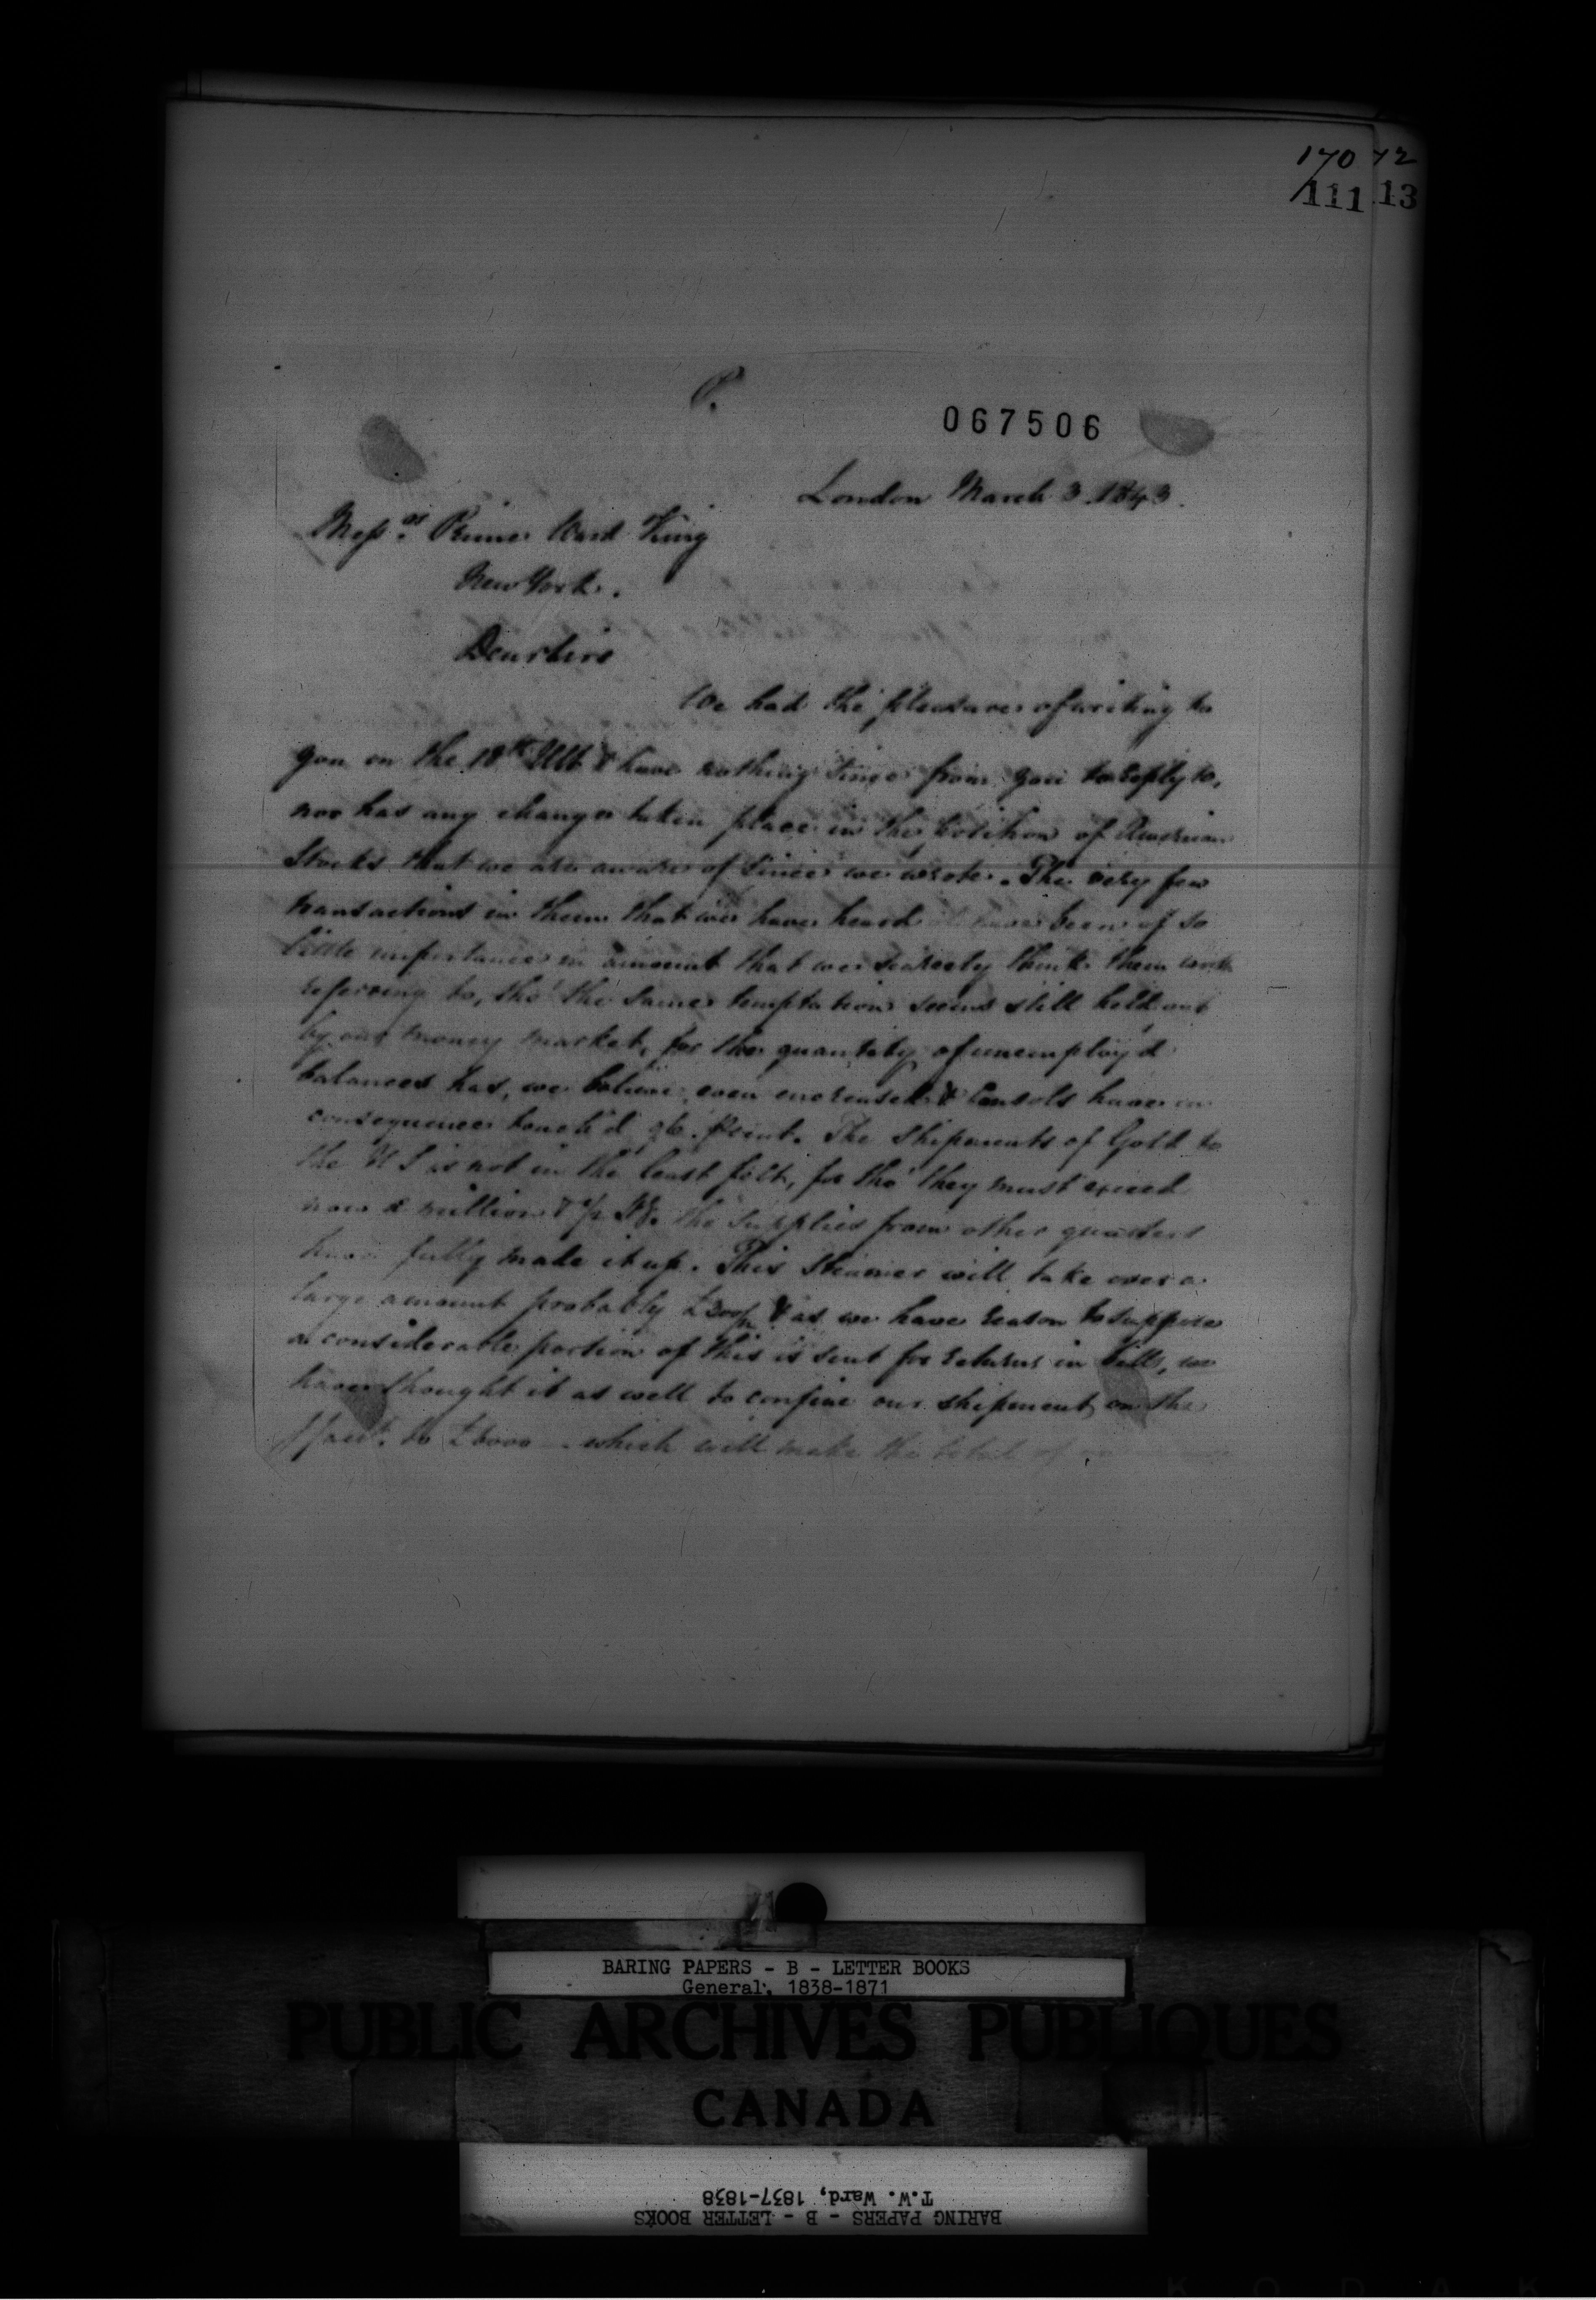 170 72
111 13
P.
067506
London March 3. 1843.
Messrs. Prime Ward King
New York.
Dear Sirs
We had the pleasure of writing to
you on the 18th Ulto & have nothing since from you to reply to,
nor has any change taken place in the position of American
Stocks that we are aware of since we wrote. The very few
transactions in them that we have heard of have been of so
little importance in amount that we scarcely think them worth
referring to, tho' the same temptation seems still held out
by our money market, for the quantity of unemploy'd
balances has, we believe, even encreased & Consols have in
consequence touch'd 96. The shipments of Gold to
the U S is not in the least felt, for tho' they must exceed
now a million & 1/2 the supplies from other quarters
have fully made it up. This Steamer will take over a
large amount probably £200/m & as we have reason to suppose
a considerable portion of this is sent for returns in bills, we
have thought it as well to confine our shipment on the
to £6000 which will make the total of
BARING PAPERS - B - LETTER BOOKS
General, 1838-1871
PUBLIC ARCHIVES PUBLIQUES
CANADA
T.W. Ward, 1837-1838
BARING PAPERS - B - LETTER BOOKS
KODAK